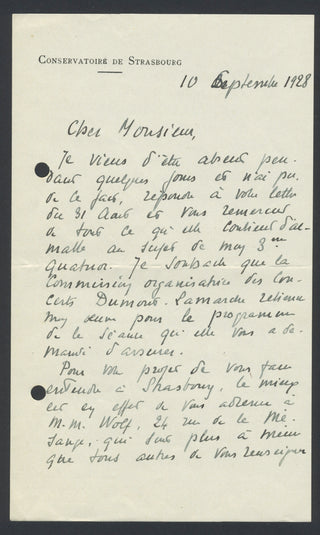 CONSERVATOIRE DE STRASBOURG
10 Septembre 1928
Cher Monsieur,
Je viens d'être absent pen-
dant quelques jours et n'ai pu,
de ce fait, répondre à votre lettre
du 31 Août et vous remercier
de tout ce qu'elle contient d'ai-
mable au sujet de mon 3me
quatuor. Je souhaite que la
Commission organisatrice des Con-
certs Dumont-Lamarche retienne
mon œuvre pour le programme
de la séance qu'elle vous a de-
mandé d'assurer.
Pour votre projet de vous faire
entendre à Strasbourg, le mieux
est en effet de vous adresser à
M.M. Wolf, 24 rue de la Mé-
sange, qui sont plus à même
que tous autres de vous renseigner